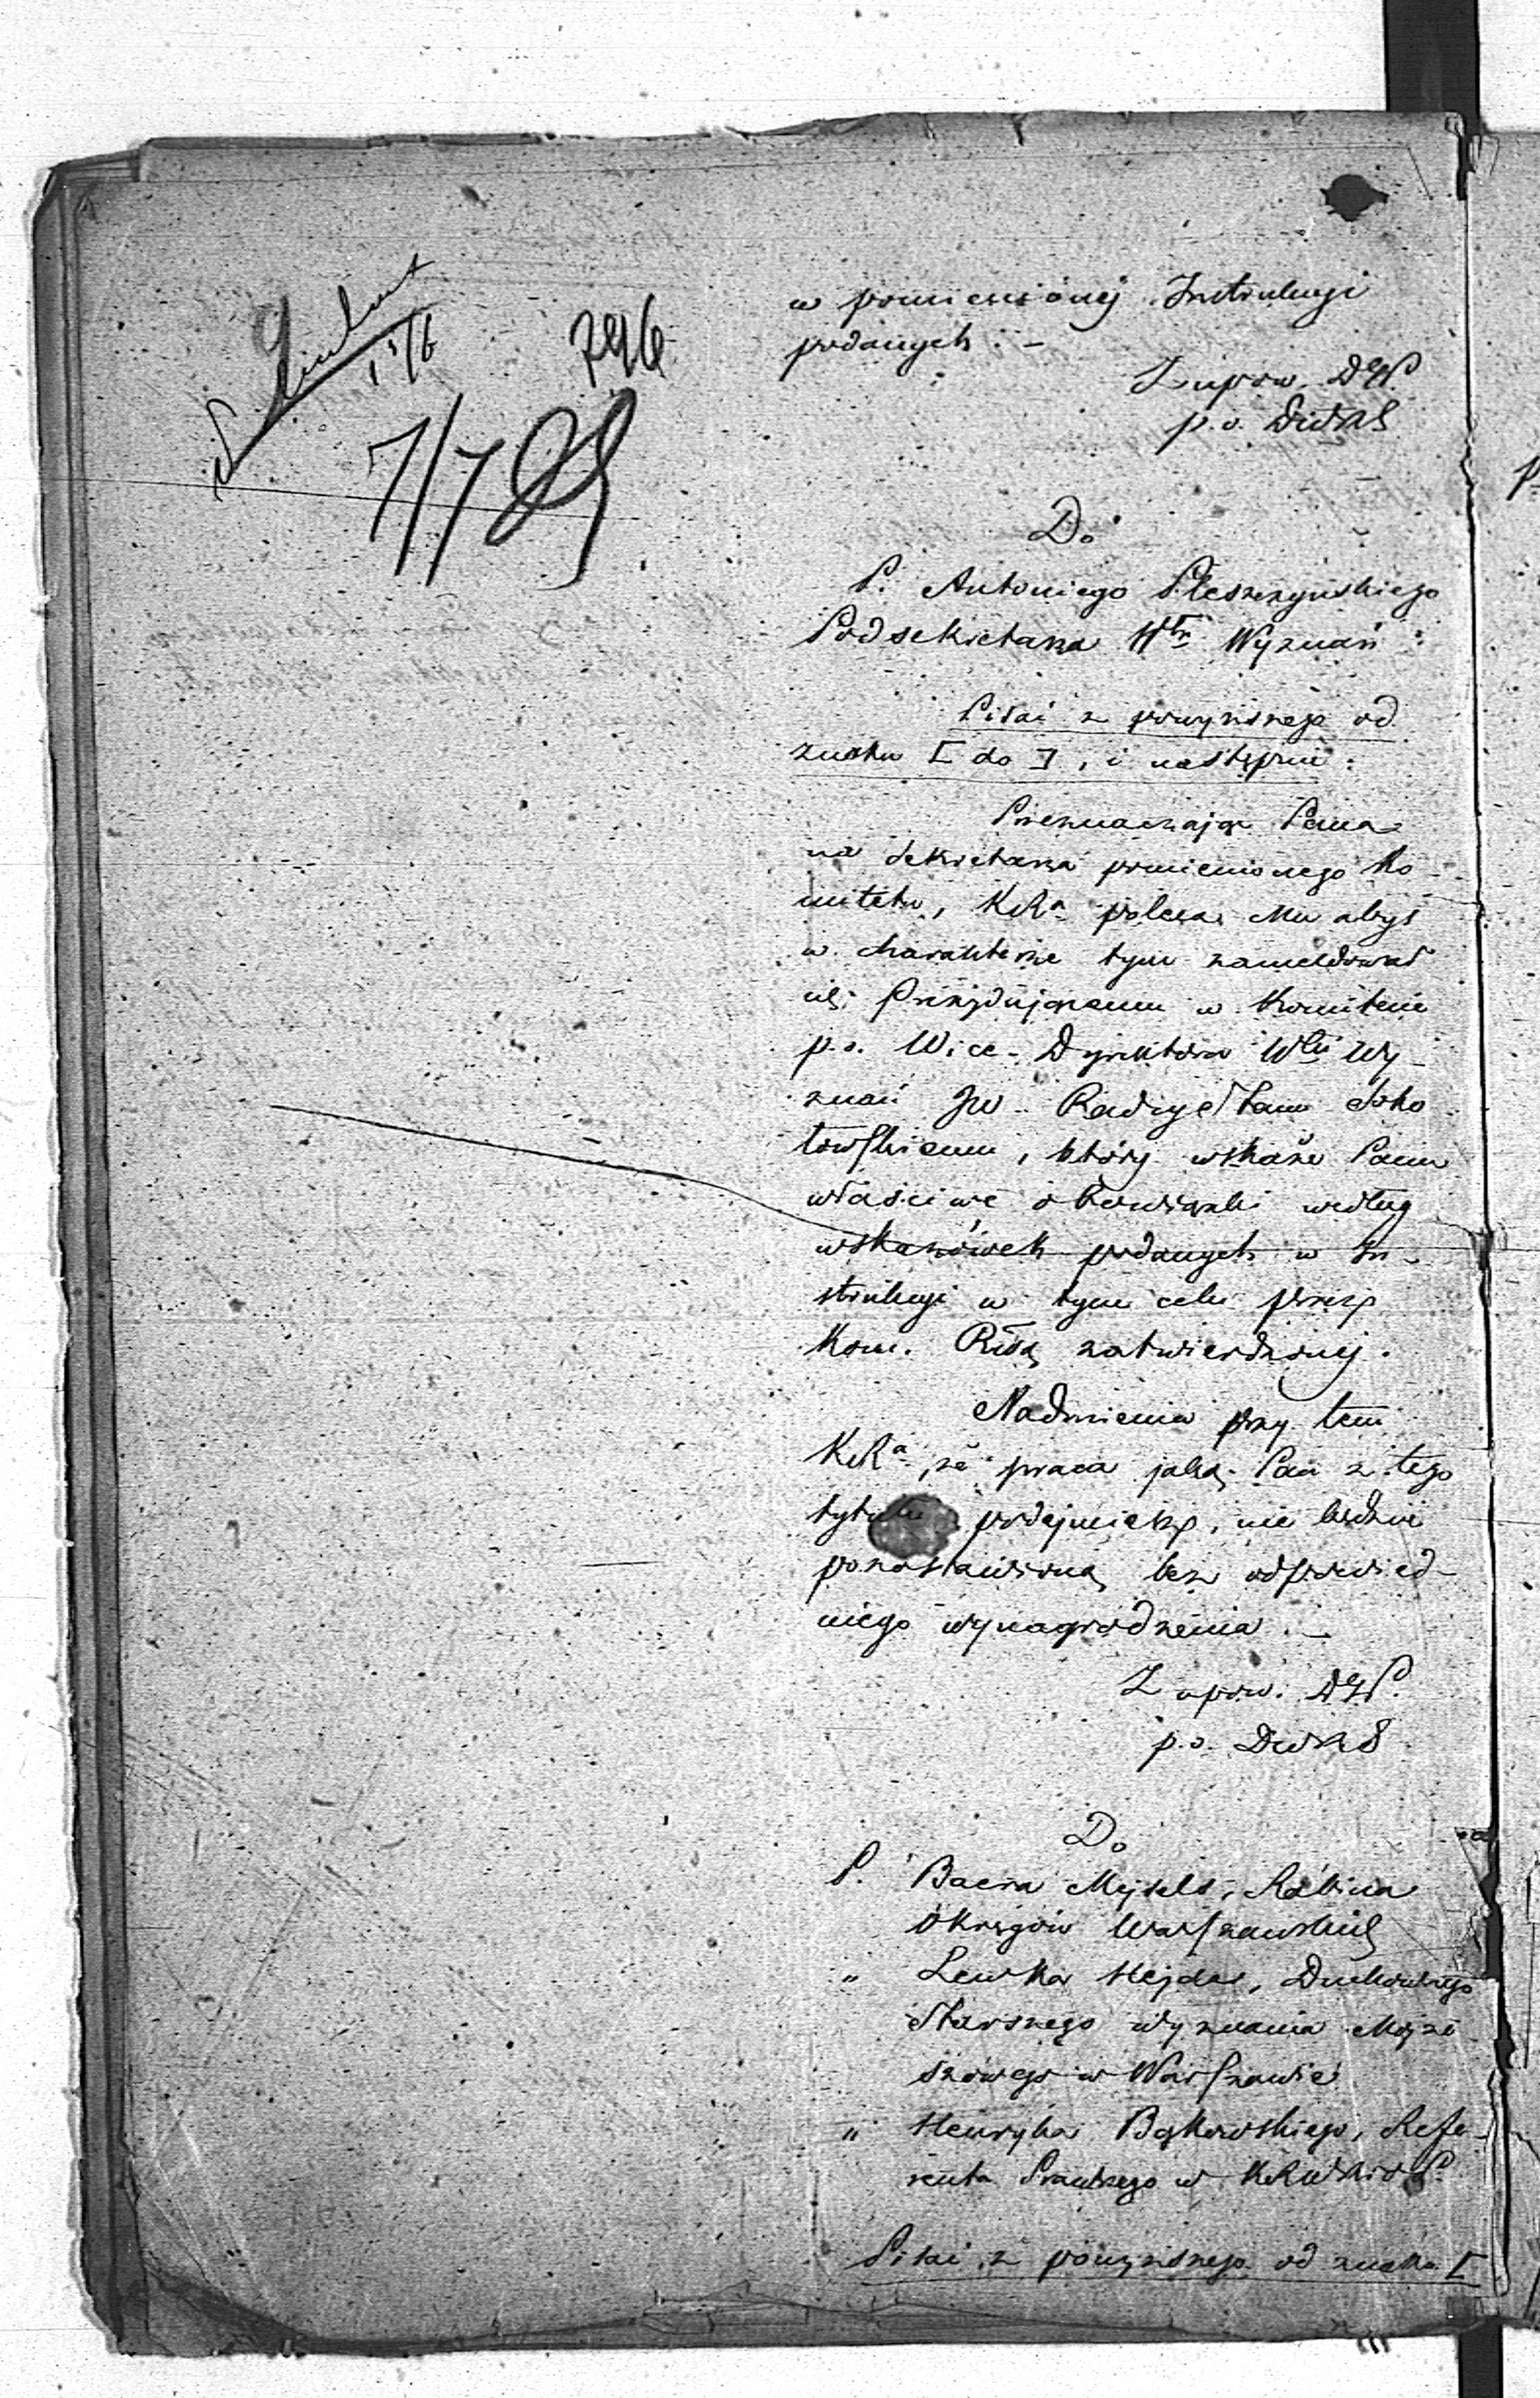 7/7
w pomienionéj Instrukcyi
podanych. –
Z upow. DGP.
p.o. DWRS
Do
P. Antoniego Pleszczyńskiego
Podsekretarza Włu Wyznań
Pisać z powyższego od
znaku [ do ], i następnie:
Przeznaczając Pana
na Sekretarza pomienionego Ko-
mitetu, KRa poleca Mu abyś
w charakterze tym zameldował
się Prezydującemu w Komitecie
p.o. Wice-Dyrektora Włu Wy-
znań JW. Radzcy Stanu Soko-
łowskiemu, który wskaże Panu
właściwe obowiązki według
wskazówek podanych w In-
strukcyi w tym celu przez
Kom. Rząd. zatwierdzonéj.
Nadmienia przy tem
KRa, że praca jaką Pan z tego
tytułu podejmiesz, nie będzie
pozostawioną bez odpowied-
niego wynagrodzenia. –
Z upow. DGP.
p.o. DWRS
Do
P. Baera Mejsels, Rabina
Okręgów Warszawskich
" Lewka Hejder, Duchownego
Starszego wyznania Mojże-
szowego w Warszawie
" Henryka Bąkowskiego, Refe-
renta Prawnego w
Pisać z powyższego od znaku [